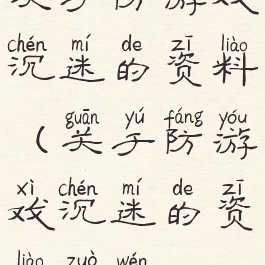 chén mí de zī liào
沉迷的资料
guān yú fáng yóu
（关于防游
xì chén mí de zī
戏沉迷的资
liào zuò wén